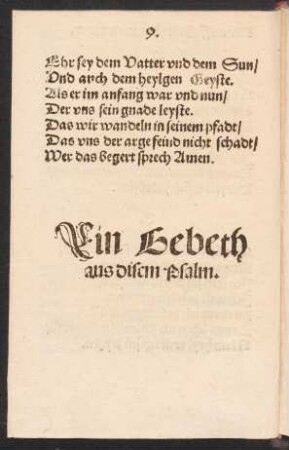 9.
Ehr sey dem Vatter vnd dem Sun/
Vnd auch dem heylgen Geyste.
Als er im anfang war vnd nun/
Der vns sein gnade leyste.
Das wir wandeln in seinem pfadt/
Das vns der arge feind nicht schadt/
Wer das begert sprech Amen.
Ein Gebeth
aus disem Psalm.